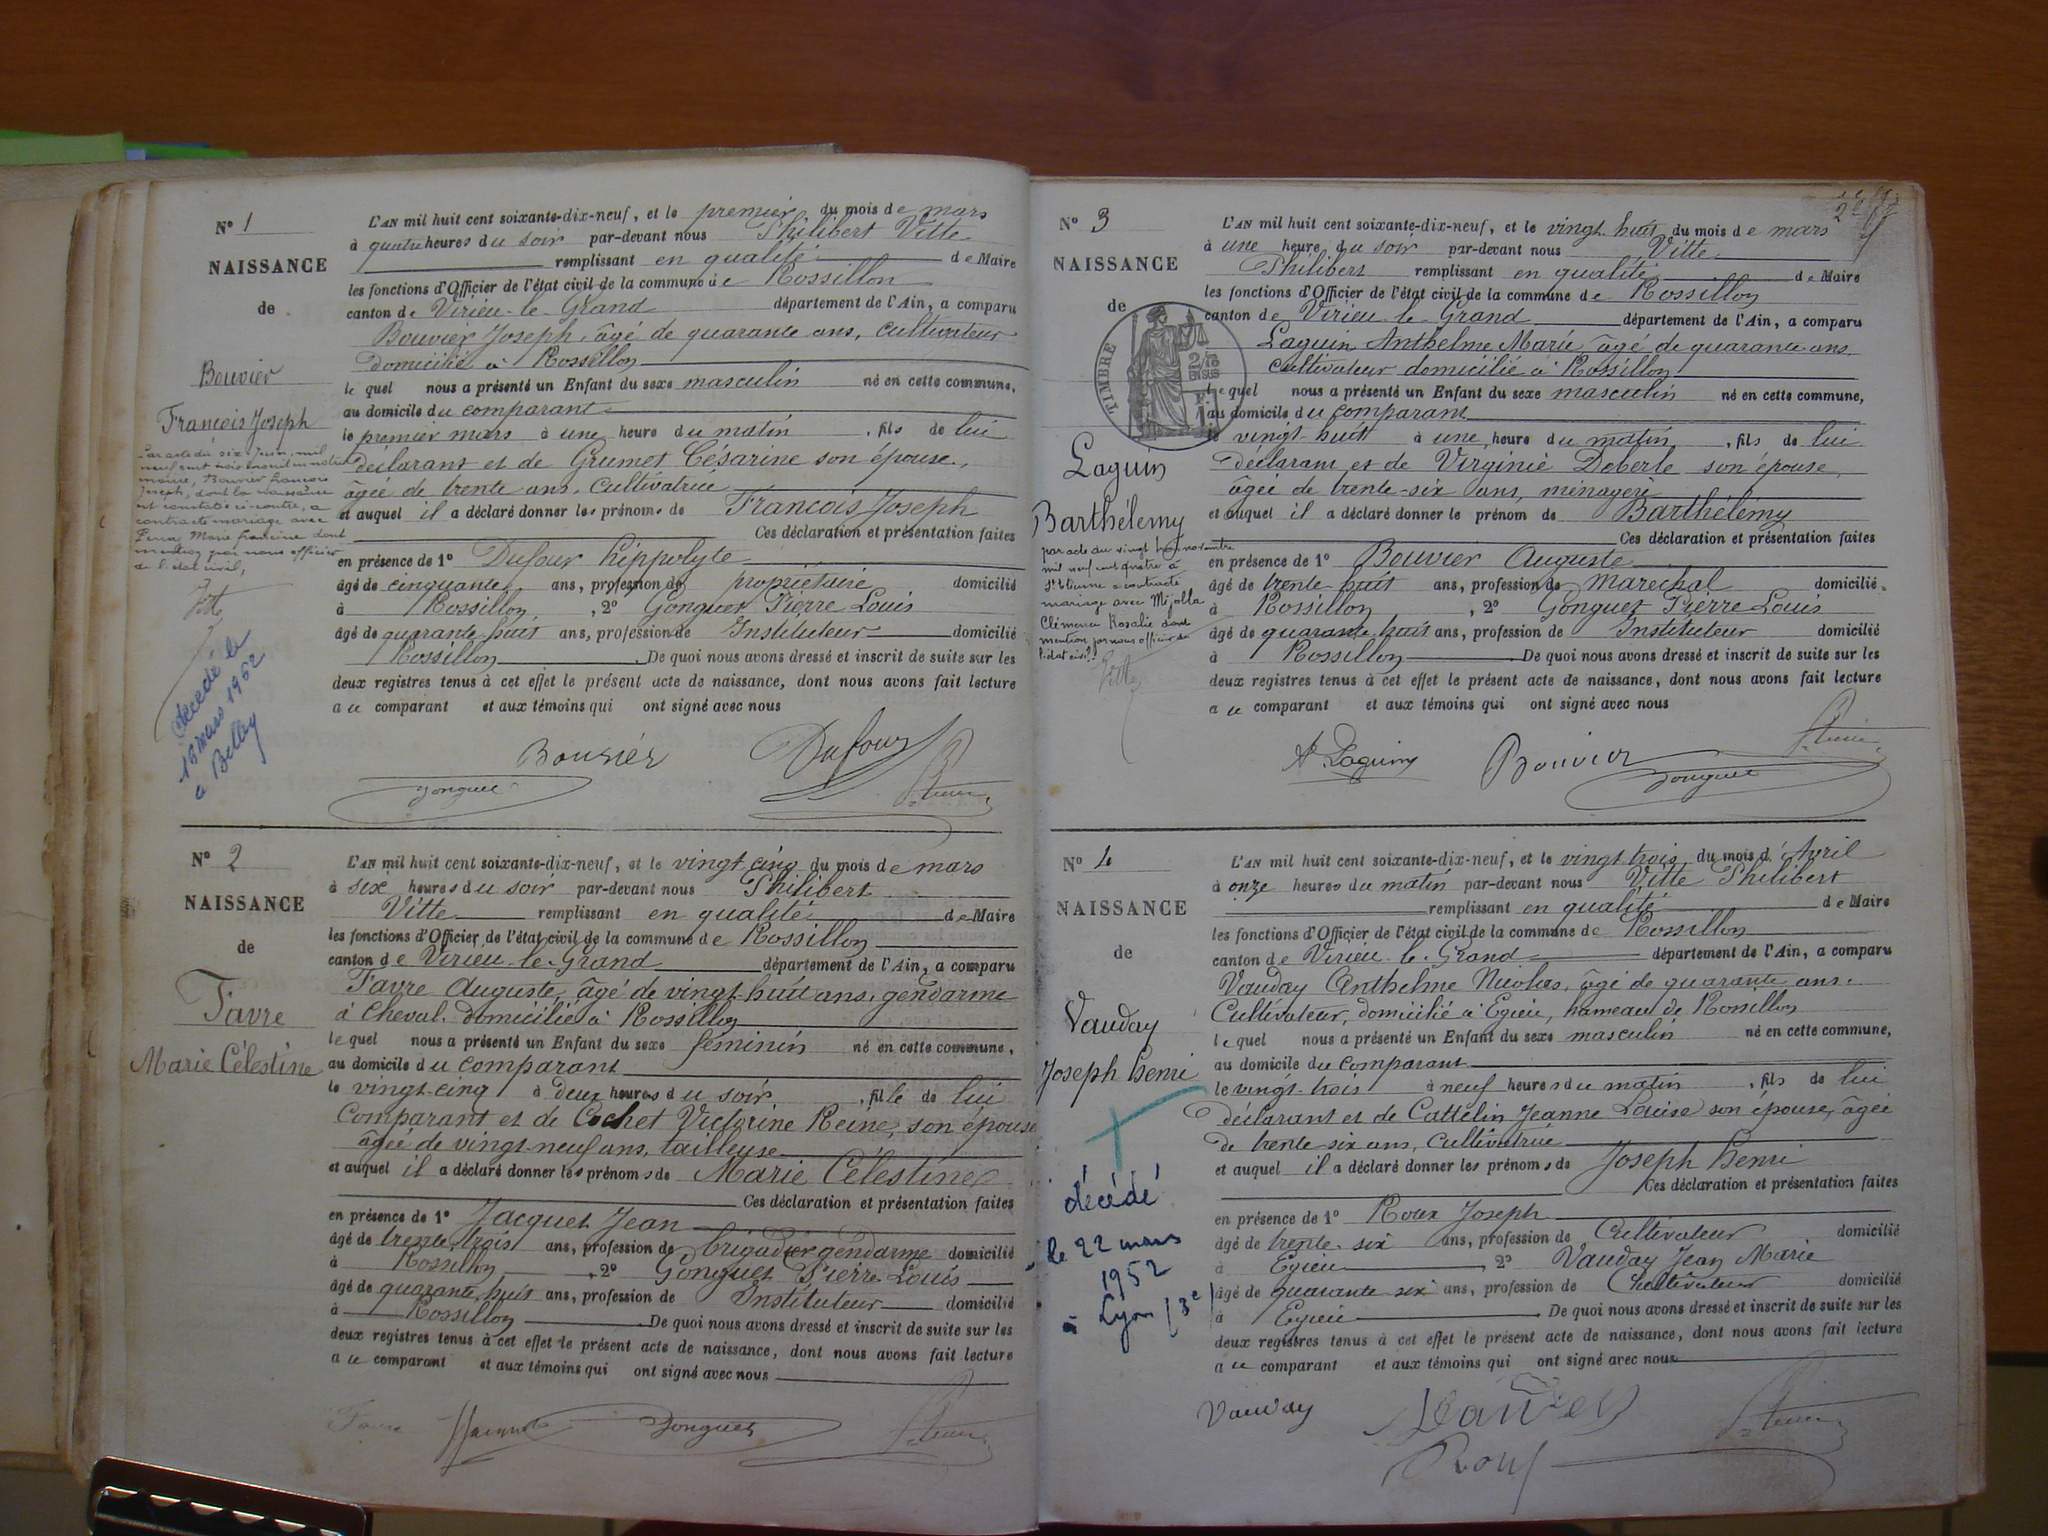 Nº 1
NAISSANCE
de
Bouvier
François Joseph
Par acte du six Juin, mil
neuf cent trois inscrit en notre
mairie, Bouvier François
Joseph, dont la naissance
est constatée ci-contre, a
contracté mariage avec
Marie Francine dont
mention par nous officier
de l'état civil,
décédé le
16 mars 1962
à Belley
L'AN mil huit cent soixante-dix-neuf, et le premier du mois de mars
à quatre heures du soir par-devant nous Philibert Vitte
remplissant en qualité de Maire
les fonctions d'Officier de l'état civil de la commune de Rossillon
canton de Virieu-le-Grand département de l'Ain, a comparu
Bouvier Joseph, âgé de quarante ans, cultivateur
domicilié à Rossillon
le quel nous a présenté un Enfant du sexe masculin né en cette commune,
au domicile du comparant
le premier mars à une heure du matin, fils de lui
déclarant et de Grumet Césarine son épouse,
âgée de trente ans, cultivatrice
et auquel il a déclaré donner les prénoms de François Joseph
Ces déclaration et présentation faites
en présence de 1º Dufour hippolyte
âgé de cinquante ans, profession de propriétaire domicilié
à Rossillon, 2º Gonguet Pierre Louis
âgé de quarante-huit ans, profession de Instituteur domicilié
Rossillon. De quoi nous avons dressé et inscrit de suite sur les
deux registres tenus à cet effet le présent acte de naissance, dont nous avons fait lecture
a u comparant et aux témoins qui ont signé avec nous
Bouvier Dufour
Gonguet
Nº 2
NAISSANCE
de
Favre
Marie Célestine
L'AN mil huit cent soixante-dix-neuf, et le vingt-cinq du mois de mars
à six heures du soir par-devant nous Philibert
Vitte remplissant en qualité de Maire
les fonctions d'Officier de l'état civil de la commune de Rossillon
canton de Virieu-le-Grand département de l'Ain, a comparu
Favre Auguste, âgé de vingt-huit ans, gendarme
à Cheval, domicilié à Rossillon
le quel nous a présenté un Enfant du sexe féminin né en cette commune,
au domicile du comparant
le vingt-cinq à deux heures du soir, fille de lui
comparant et de Cochet Victorine Reine, son épouse
âgée de vingt-neuf ans, tailleuse
et auquel il a déclaré donner les prénoms de Marie Célestine
Ces déclaration et présentation faites
en présence de 1º Jacquet Jean
âgé de trente trois ans, profession de brigadier gendarme domicilié
à Rossillon, 2º Gonguet Pierre Louis
âgé de quarante huit ans, profession de Instituteur domicilié
à Rossillon. De quoi nous avons dressé et inscrit de suite sur les
deux registres tenus à cet effet le présent acte de naissance, dont nous avons fait lecture
a u comparant et aux témoins qui ont signé avec nous
Favre Gonguet
Nº 3
NAISSANCE
de
TIMBRE
2/10
EN SUS
Laguin
Barthélemy
par acte du vingt novembre
mil neuf cent quatre à
St Etienne a contracté
mariage avec Mijolla
Clémence Rosalie dont
mention par nous officier de
l'état civil.
L'AN mil huit cent soixante-dix-neuf, et le vingt huit du mois de mars
à une heure du soir par-devant nous Vitte
Philibert remplissant en qualité de Maire
les fonctions d'Officier de l'état civil de la commune de Rossillon
canton de Virieu-le-Grand département de l'Ain, a comparu
Laguin Anthelme Marie, âgé de quarante ans,
cultivateur domicilié à Rossillon
le quel nous a présenté un Enfant du sexe masculin né en cette commune,
au domicile du comparant
le vingt-huit à une heure du matin, fils de lui
déclarant et de Virginie Deberle son épouse,
âgée de trente-six ans, ménagère
et auquel il a déclaré donner le prénom de Barthélémy
Ces déclaration et présentation faites
en présence de 1º Bouvier Auguste
âgé de trente huit ans, profession de maréchal domicilié
à Rossillon, 2º Gonguet Pierre Louis
âgé de quarante huit ans, profession de Instituteur domicilié
à Rossillon. De quoi nous avons dressé et inscrit de suite sur les
deux registres tenus à cet effet le présent acte de naissance, dont nous avons fait lecture
a u comparant et aux témoins qui ont signé avec nous
A Laguin Bouvier
Gonguet
Nº 4
NAISSANCE
de
Vauday
Joseph henri
décédé
le 22 mars
1952
à Lyon (3e)
L'AN mil huit cent soixante-dix-neuf, et le vingt trois du mois d'Avril
à onze heures du matin par-devant nous Vitte Philibert
remplissant en qualité de Maire
les fonctions d'Officier de l'état civil de la commune de Rossillon
canton de Virieu-le-Grand département de l'Ain, a comparu
Vauday Anthelme Nicolas, âgé de quarante ans,
Cultivateur, domicilié à Egieu, hameau de Rossillon
le quel nous a présenté un Enfant du sexe masculin né en cette commune,
au domicile du comparant
le vingt-trois à neuf heures du matin, fils de lui
déclarant et de Cattelin Jeanne Louise son épouse, âgée
de trente six ans, cultivatrice
et auquel il a déclaré donner les prénoms de Joseph henri
Ces déclaration et présentation faites
en présence de 1º Roux Joseph
âgé de trente-six ans, profession de Cultivateur domicilié
à Egieu, 2º Vauday Jean Marie
âgé de quarante six ans, profession de Cultivateur domicilié
à Egieu. De quoi nous avons dressé et inscrit de suite sur les
deux registres tenus à cet effet le présent acte de naissance, dont nous avons fait lecture
a u comparant et aux témoins qui ont signé avec nous
Vauday
Roux